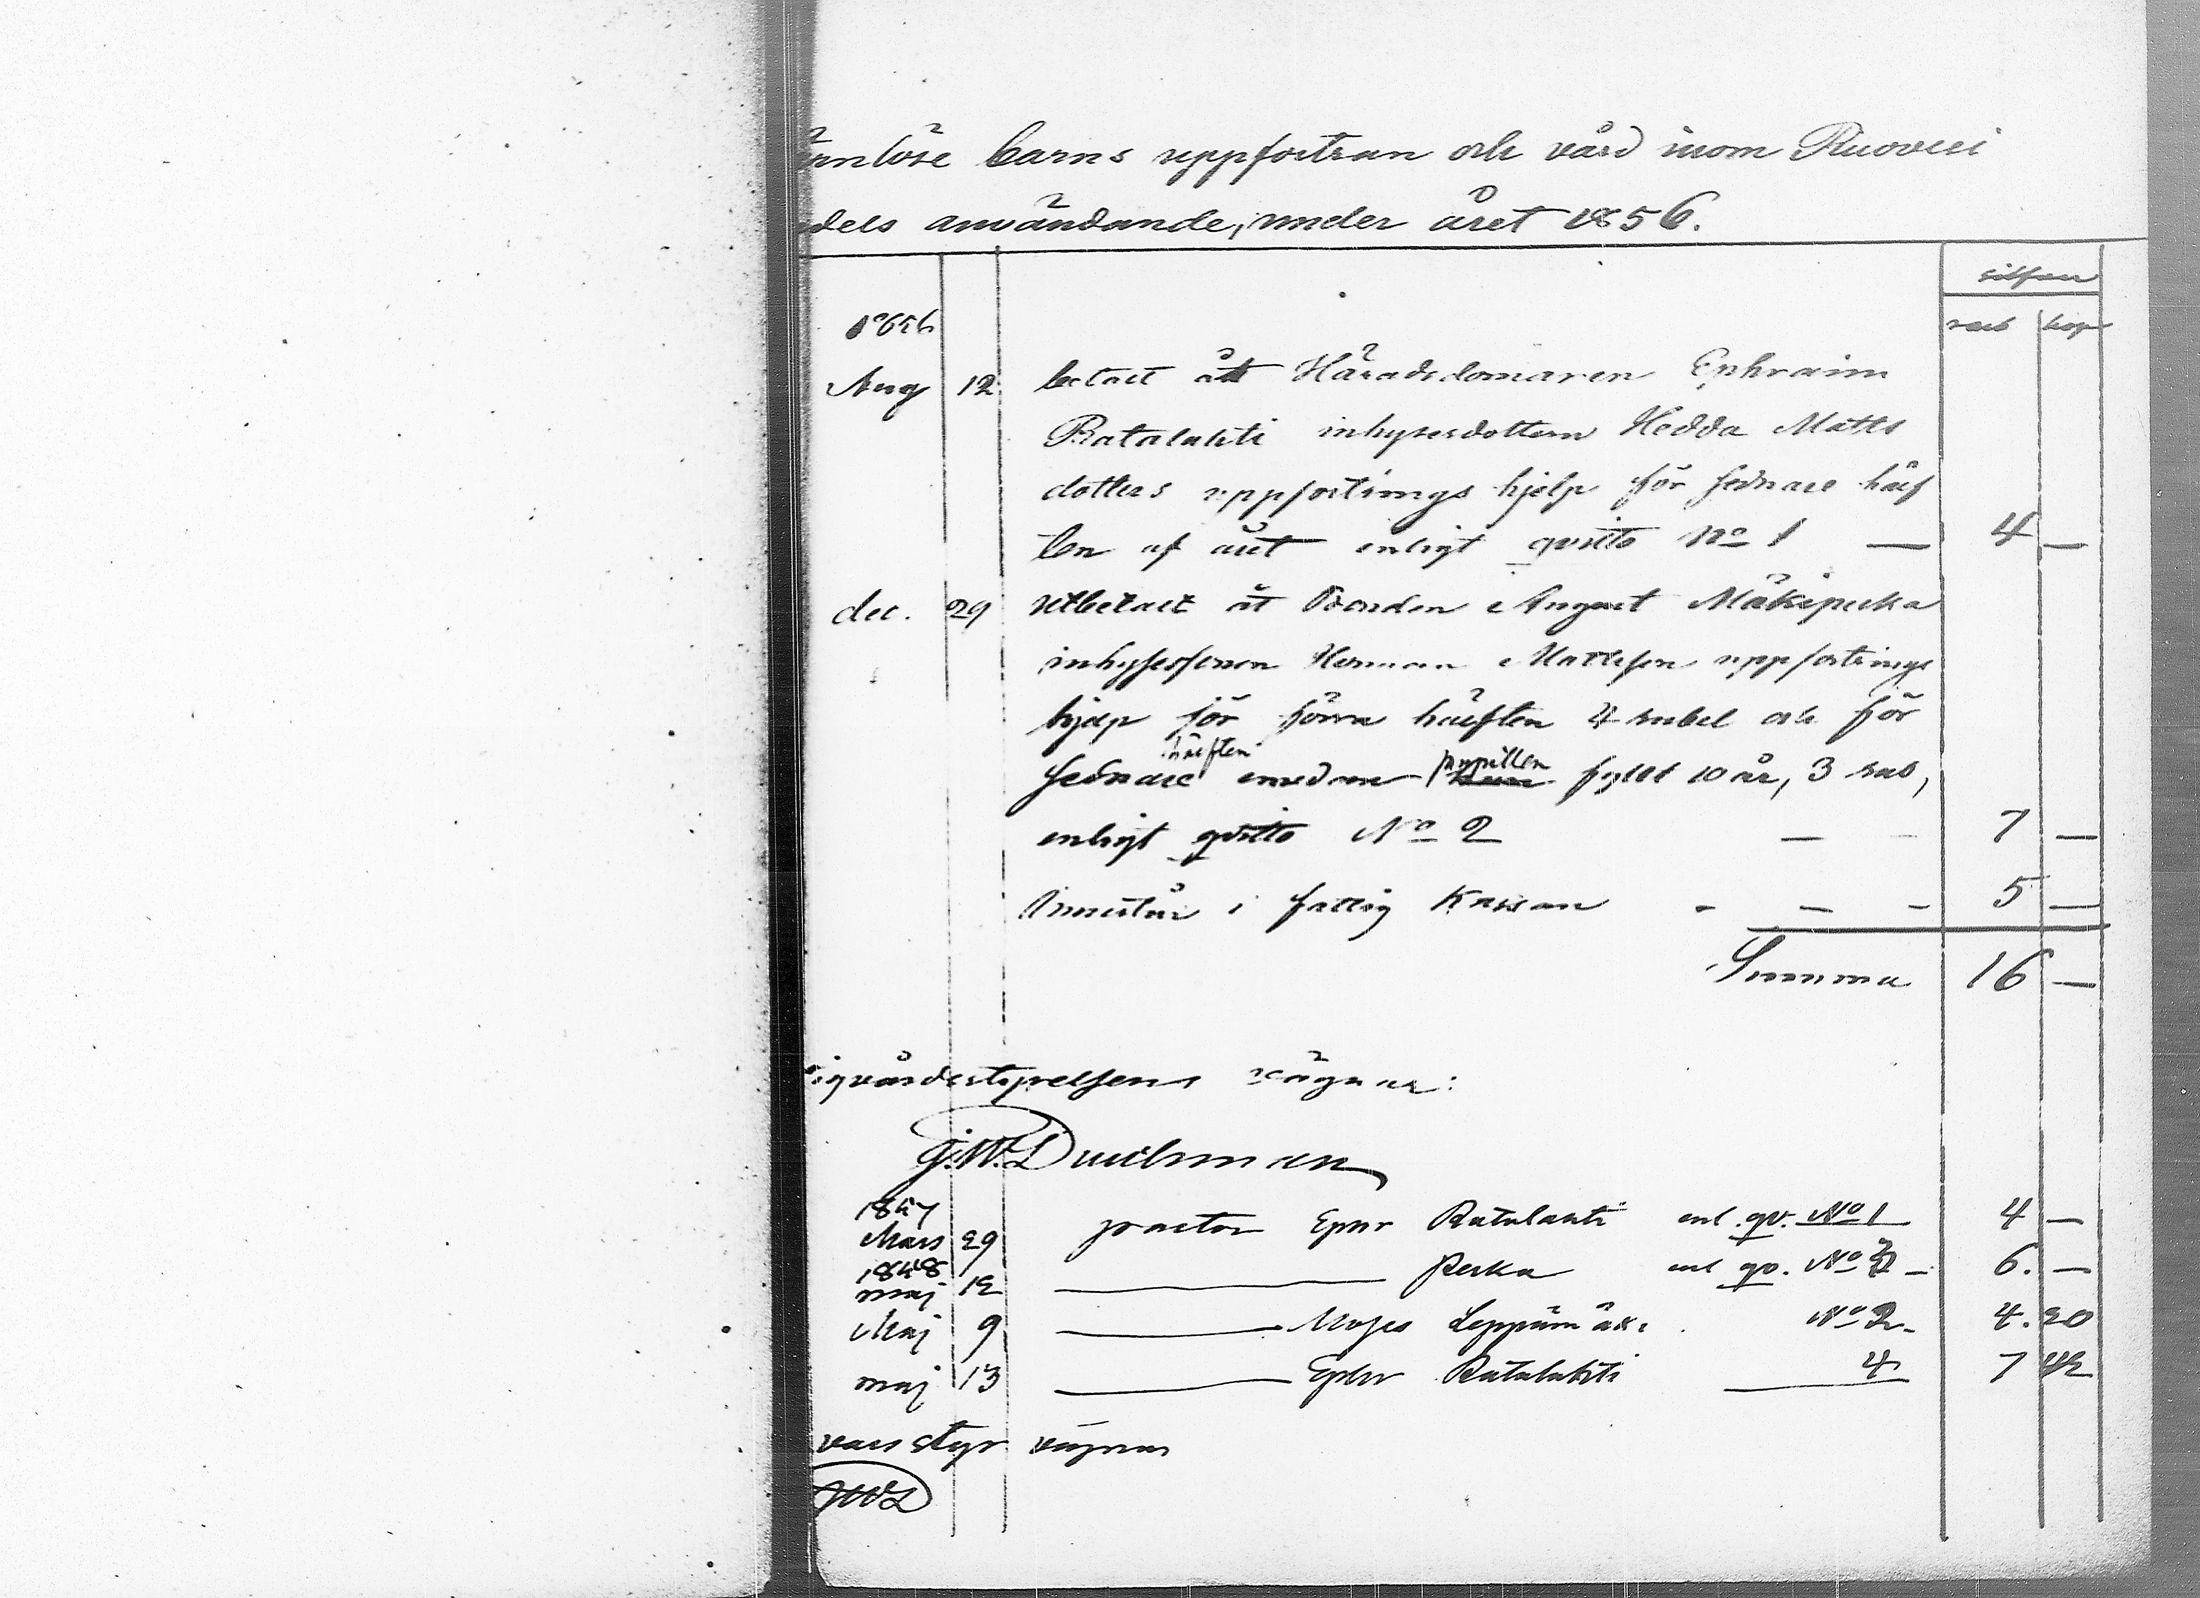 ärnlöse barns uppfostran och vård inom Ruovesi
dels användande, under året 1856.
silfver
rub kop
1856
Aug 12 betalt åt Häradsdomaren Ephraim
Ratalahti inhysesdottern Hedda Matts
dotters uppfostrings hjelp för sednare hälf
ten af året enligt qvitto No 1 — 4 —
dec. 29 utbetalt åt Bonden August Mäkipecka
inhysessonen Herman Mattsson uppfostrings
hjelp för förra hälften 4 rubel och för
sednare hälften emedan pupillen fyllt 10 år, 3 rub,
enligt qvitto No 2 — 7 —
Innestår i fattig Kassan - — - 5 —
Summa 16 —
igvårdsstyrelsens vägnar:
J.W. Durchman
1857
Mars 29 practor Ephr Ratalahti enl. qv. No 1 4 —
1858
maj 12 — Pecka enl qv. No 6. —
Maj 9 — Moses Leppämäki No 2 - 4. 20
maj 13 — Ephr Ratalahti 4 7 42
vårs styr vägnar
JWD